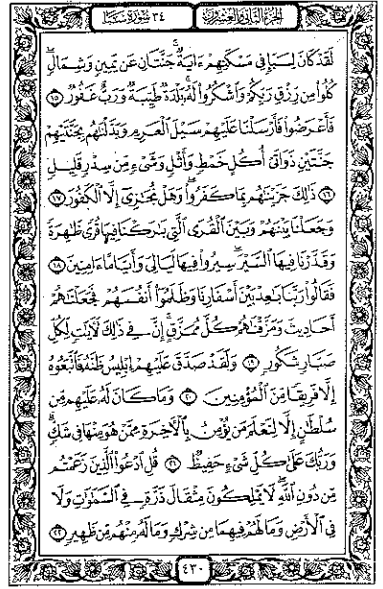 الجزء الثاني والعشرون
٣٤ سورة سبأ
لَقَدْ كَانَ لِسَبَإٍ فِي مَسْكَنِهِمْ ءَايَةٌ جَنَّتَانِ عَن يَمِينٍ وَشِمَالٍ
كُلُوا۟ مِن رِّزْقِ رَبِّكُمْ وَٱشْكُرُوا۟ لَهُۥ بَلْدَةٌ طَيِّبَةٌ وَرَبٌّ غَفُورٌ ١٥
فَأَعْرَضُوا۟ فَأَرْسَلْنَا عَلَيْهِمْ سَيْلَ ٱلْعَرِمِ وَبَدَّلْنَٰهُم بِجَنَّتَيْهِمْ
جَنَّتَيْنِ ذَوَاتَىْ أُكُلٍ خَمْطٍ وَأَثْلٍ وَشَىْءٍ مِّن سِدْرٍ قَلِيلٍ
١٦ ذَٰلِكَ جَزَيْنَٰهُم بِمَا كَفَرُوا۟ وَهَلْ نُجَٰزِىٓ إِلَّا ٱلْكَفُورَ ١٧
وَجَعَلْنَا بَيْنَهُمْ وَبَيْنَ ٱلْقُرَى ٱلَّتِى بَٰرَكْنَا فِيهَا قُرًى ظَٰهِرَةً
وَقَدَّرْنَا فِيهَا ٱلسَّيْرَ سِيرُوا۟ فِيهَا لَيَالِىَ وَأَيَّامًا ءَامِنِينَ ١٨
فَقَالُوا۟ رَبَّنَا بَٰعِدْ بَيْنَ أَسْفَارِنَا وَظَلَمُوٓا۟ أَنفُسَهُمْ فَجَعَلْنَٰهُمْ
أَحَادِيثَ وَمَزَّقْنَٰهُمْ كُلَّ مُمَزَّقٍ إِنَّ فِى ذَٰلِكَ لَءَايَٰتٍ لِّكُلِّ
صَبَّارٍ شَكُورٍ ١٩ وَلَقَدْ صَدَّقَ عَلَيْهِمْ إِبْلِيسُ ظَنَّهُۥ فَٱتَّبَعُوهُ
إِلَّا فَرِيقًا مِّنَ ٱلْمُؤْمِنِينَ ٢٠ وَمَا كَانَ لَهُۥ عَلَيْهِم مِّن
سُلْطَٰنٍ إِلَّا لِنَعْلَمَ مَن يُؤْمِنُ بِٱلْءَاخِرَةِ مِمَّنْ هُوَ مِنْهَا فِى شَكٍّ
وَرَبُّكَ عَلَىٰ كُلِّ شَىْءٍ حَفِيظٌ ٢١ قُلِ ٱدْعُوا۟ ٱلَّذِينَ زَعَمْتُم
مِّن دُونِ ٱللَّهِ لَا يَمْلِكُونَ مِثْقَالَ ذَرَّةٍ فِى ٱلسَّمَٰوَٰتِ وَلَا
فِى ٱلْأَرْضِ وَمَا لَهُمْ فِيهِمَا مِن شِرْكٍ وَمَا لَهُۥ مِنْهُم مِّن ظَهِيرٍ ٢٢
٤٣٠